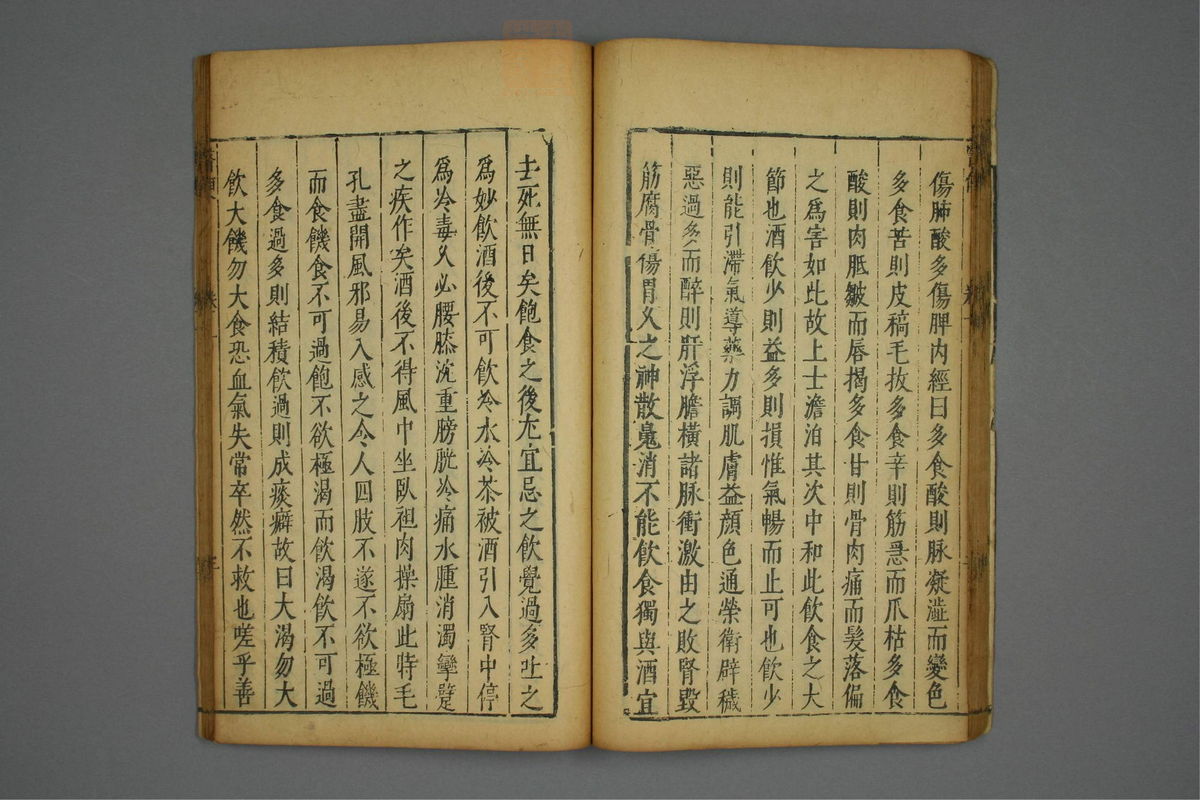 傷肺酸多傷脾内經曰多食酸則脉凝澁而變色
多食苦則皮稿毛拔多食辛則筋急而爪枯多食
酸則肉胝皺而唇揭多食甘則骨肉痛而髮落偏
之爲害如此故上士澹泊其次中和此飲食之大
節也酒飲少則益多則損惟氣暢而止可也飲少
則能引滯氣導藥力調肌膚益顔色通榮衛辟穢
惡過多而醉則肝浮膽橫諸脉衝激由之敗腎毀
筋腐骨傷胃久之神散䰟消不能飲食獨與酒宜
去死無日矣飽食之後尤宜忌之飲覺過多吐之
爲妙飲酒後不可飲冷水冷茶被酒引入腎中停
爲冷毒久必腰膝沉重膀胱冷痛水腫消濁攣躄
之疾作矣酒後不得風中坐臥袒肉操扇此時毛
孔盡開風邪易入感之令人四肢不遂不欲極饑
而食饑食不可過飽不欲極渴而飲渴飲不可過
多食過多則結積飲過則成痰癖故曰大渴勿大
飲大饑勿大食恐血氣失常卒然不救也嗟乎善